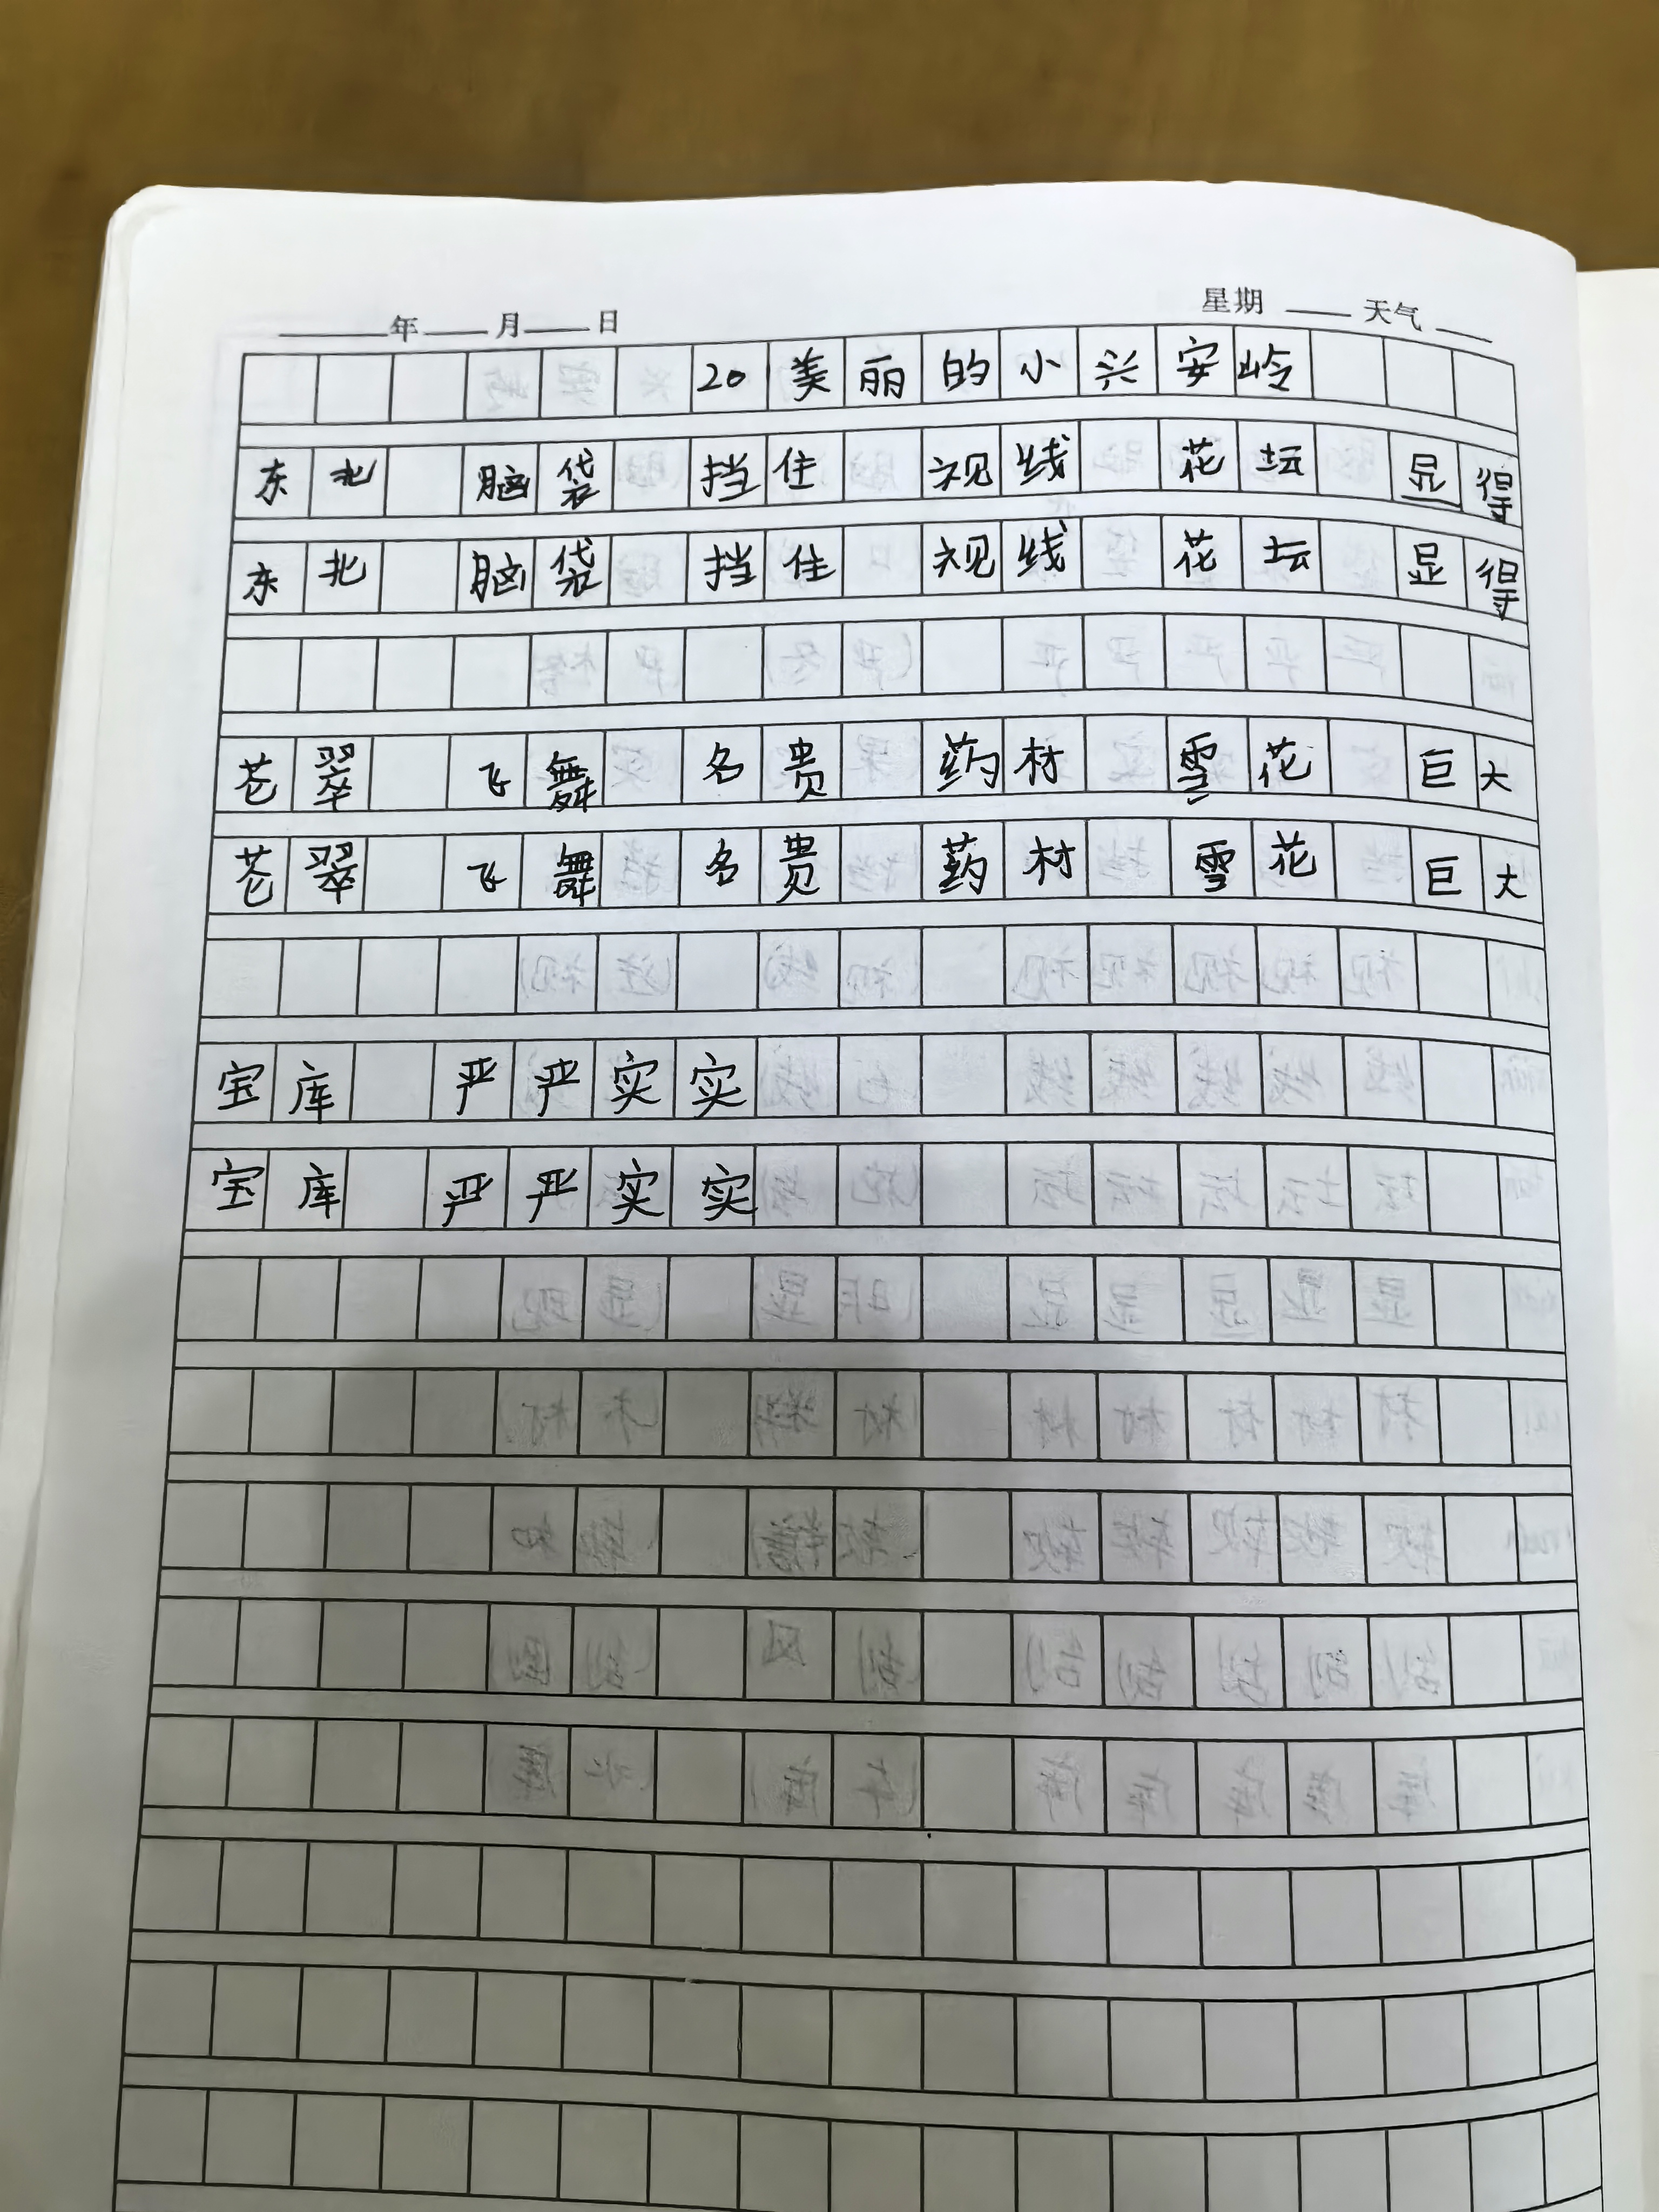 ____年____月____日 星期____天气____
20 美丽的小兴安岭
东北 脑袋 挡住 视线 花坛 显得
东北 脑袋 挡住 视线 花坛 显得
苍翠 飞舞 名贵 药材 雪花 巨大
苍翠 飞舞 名贵 药材 雪花 巨大
宝库 严严实实
宝库 严严实实